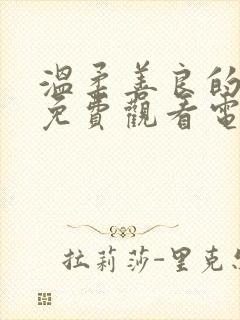 溫柔善良的
免費觀看電
拉莉莎-里克